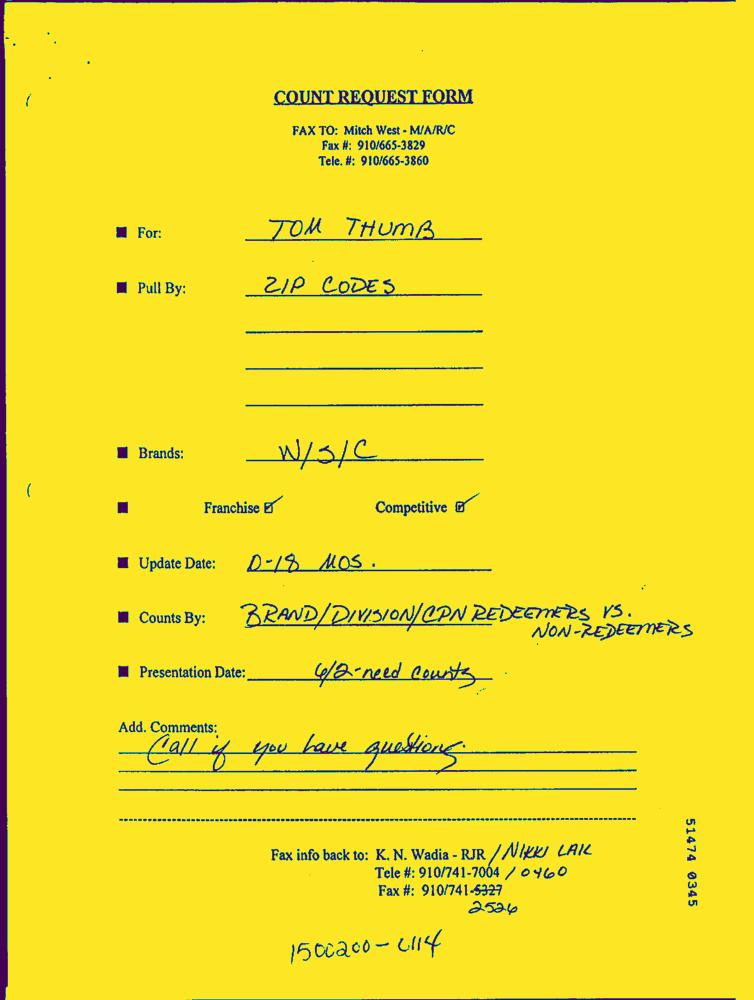 COUNT REQUEST FORM
FAX TO: Mitch West - M/A/R/C
Fax #: 910/665-3829
Tele. #: 910/665-3860
For: TOM THUMB
Pull By: ZIP CODES
Brands: W/S/C
Franchise ☑ Competitive ☑
Update Date: 0-18 MOS.
Counts By: BRAND/DIVISION/CPN REDEEMERS VS.
NON-REDEEMERS
Presentation Date: 6/2-need counts
Add. Comments:
Call if you have questions.
Fax info back to: K. N. Wadia - RJR / NIKKI LAIL
Tele #: 910/741-7004 / 0460
Fax #: 910/741-5327
2526
51474 0345